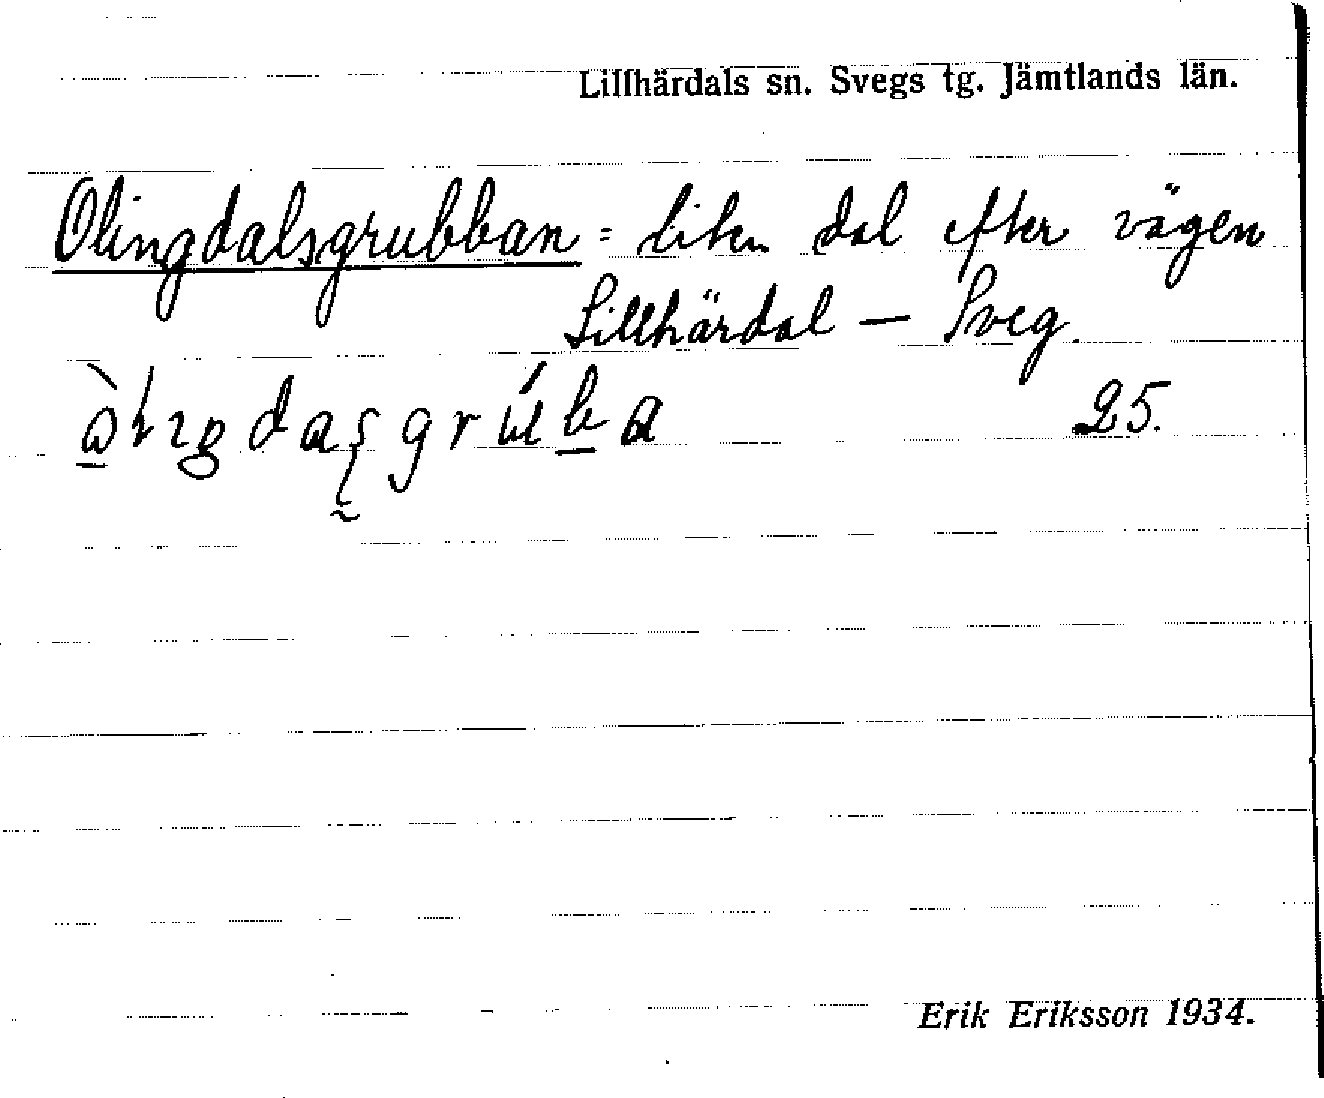 Lillhärdals sn. Svegs tg. Jämtlands län.
Olingdalsgrubban = liten dal efter vägen
Lillhärdal — Sveg.
25.
Erik Eriksson 1934.